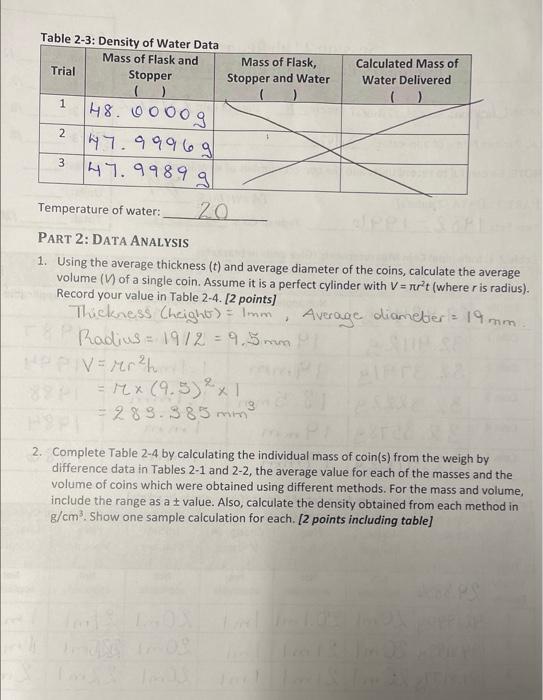 Table 2-3: Density of Water Data
Trial
Mass of Flask and
Stopper
( )
Mass of Flask,
Stopper and Water
( )
Calculated Mass of
Water Delivered
( )
1 48.0000g
2 47.9996g
3 47.9989g
Temperature of water: 20
PART 2: DATA ANALYSIS
1. Using the average thickness (t) and average diameter of the coins, calculate the average
volume (V) of a single coin. Assume it is a perfect cylinder with V = πr²t (where r is radius).
Record your value in Table 2-4. [2 points]
Thickness (height) = 1mm , Average diameter = 19 mm.
Radius = 19/2 = 9.5 mm
V = πr²h
= π x (9.5)² x 1
= 283.385 mm³
2. Complete Table 2-4 by calculating the individual mass of coin(s) from the weigh by
difference data in Tables 2-1 and 2-2, the average value for each of the masses and the
volume of coins which were obtained using different methods. For the mass and volume,
include the range as a ± value. Also, calculate the density obtained from each method in
g/cm³. Show one sample calculation for each. [2 points including table]